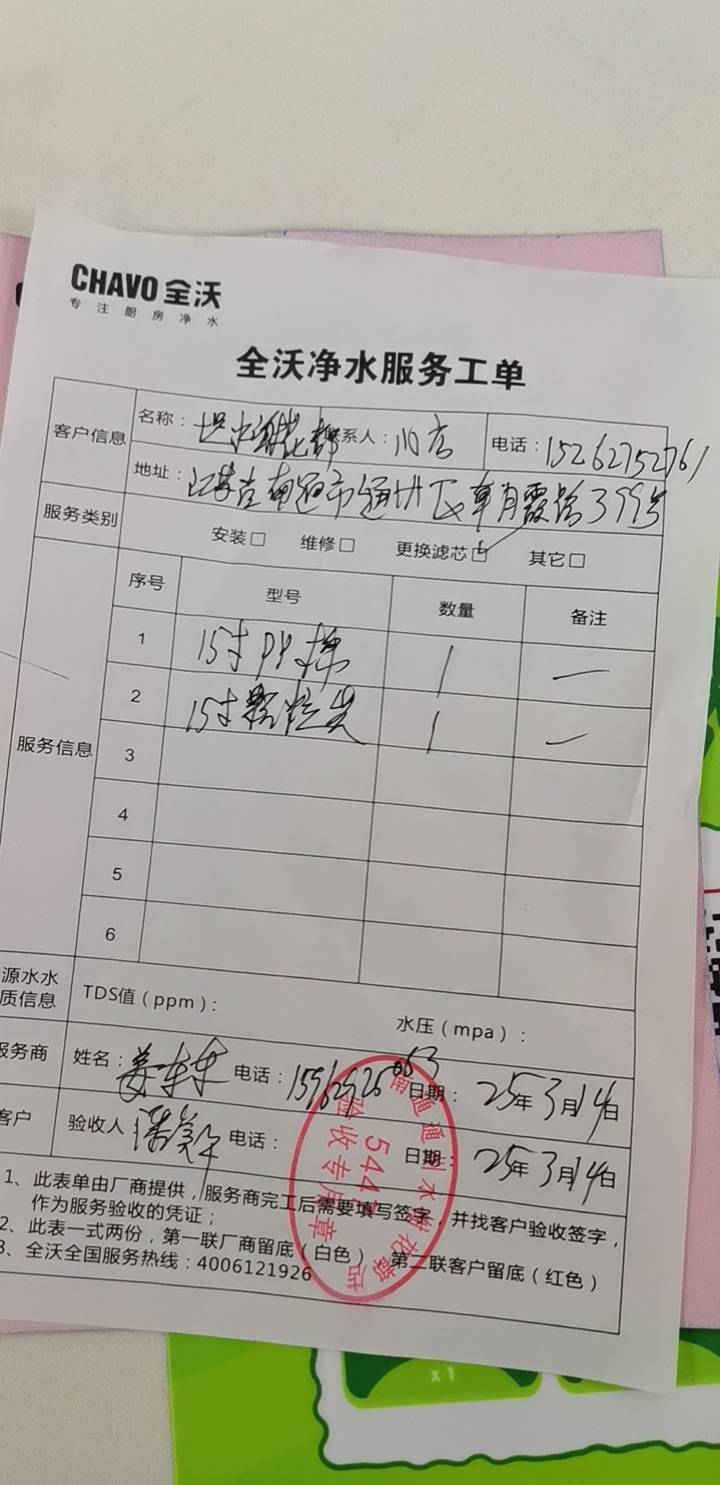 CHAVO 全沃
专注厨房净水
全沃净水服务工单
客户信息
名称： 联系人：门店 电话：15262752761
地址：江苏省南通市通州区 霞路399号
服务类别
安装□ 维修□ 更换滤芯☑ 其它□
服务信息
序号 型号 数量 备注
1 15寸PP棉 1 —
2 15寸颗粒炭 1 —
3
4
5
6
源水水质信息
TDS值（ppm）： 水压（mpa）：
服务商 姓名：姜东东 电话： 日期：25年3月14日
客户 验收人 电话： 日期：25年3月14日
1、此表单由厂商提供，服务商完工后需要填写签字，并找客户验收签字，
作为服务验收的凭证；
2、此表一式两份，第一联厂商留底（白色） 第二联客户留底（红色）
3、全沃全国服务热线：4006121926
验收专用章
x1